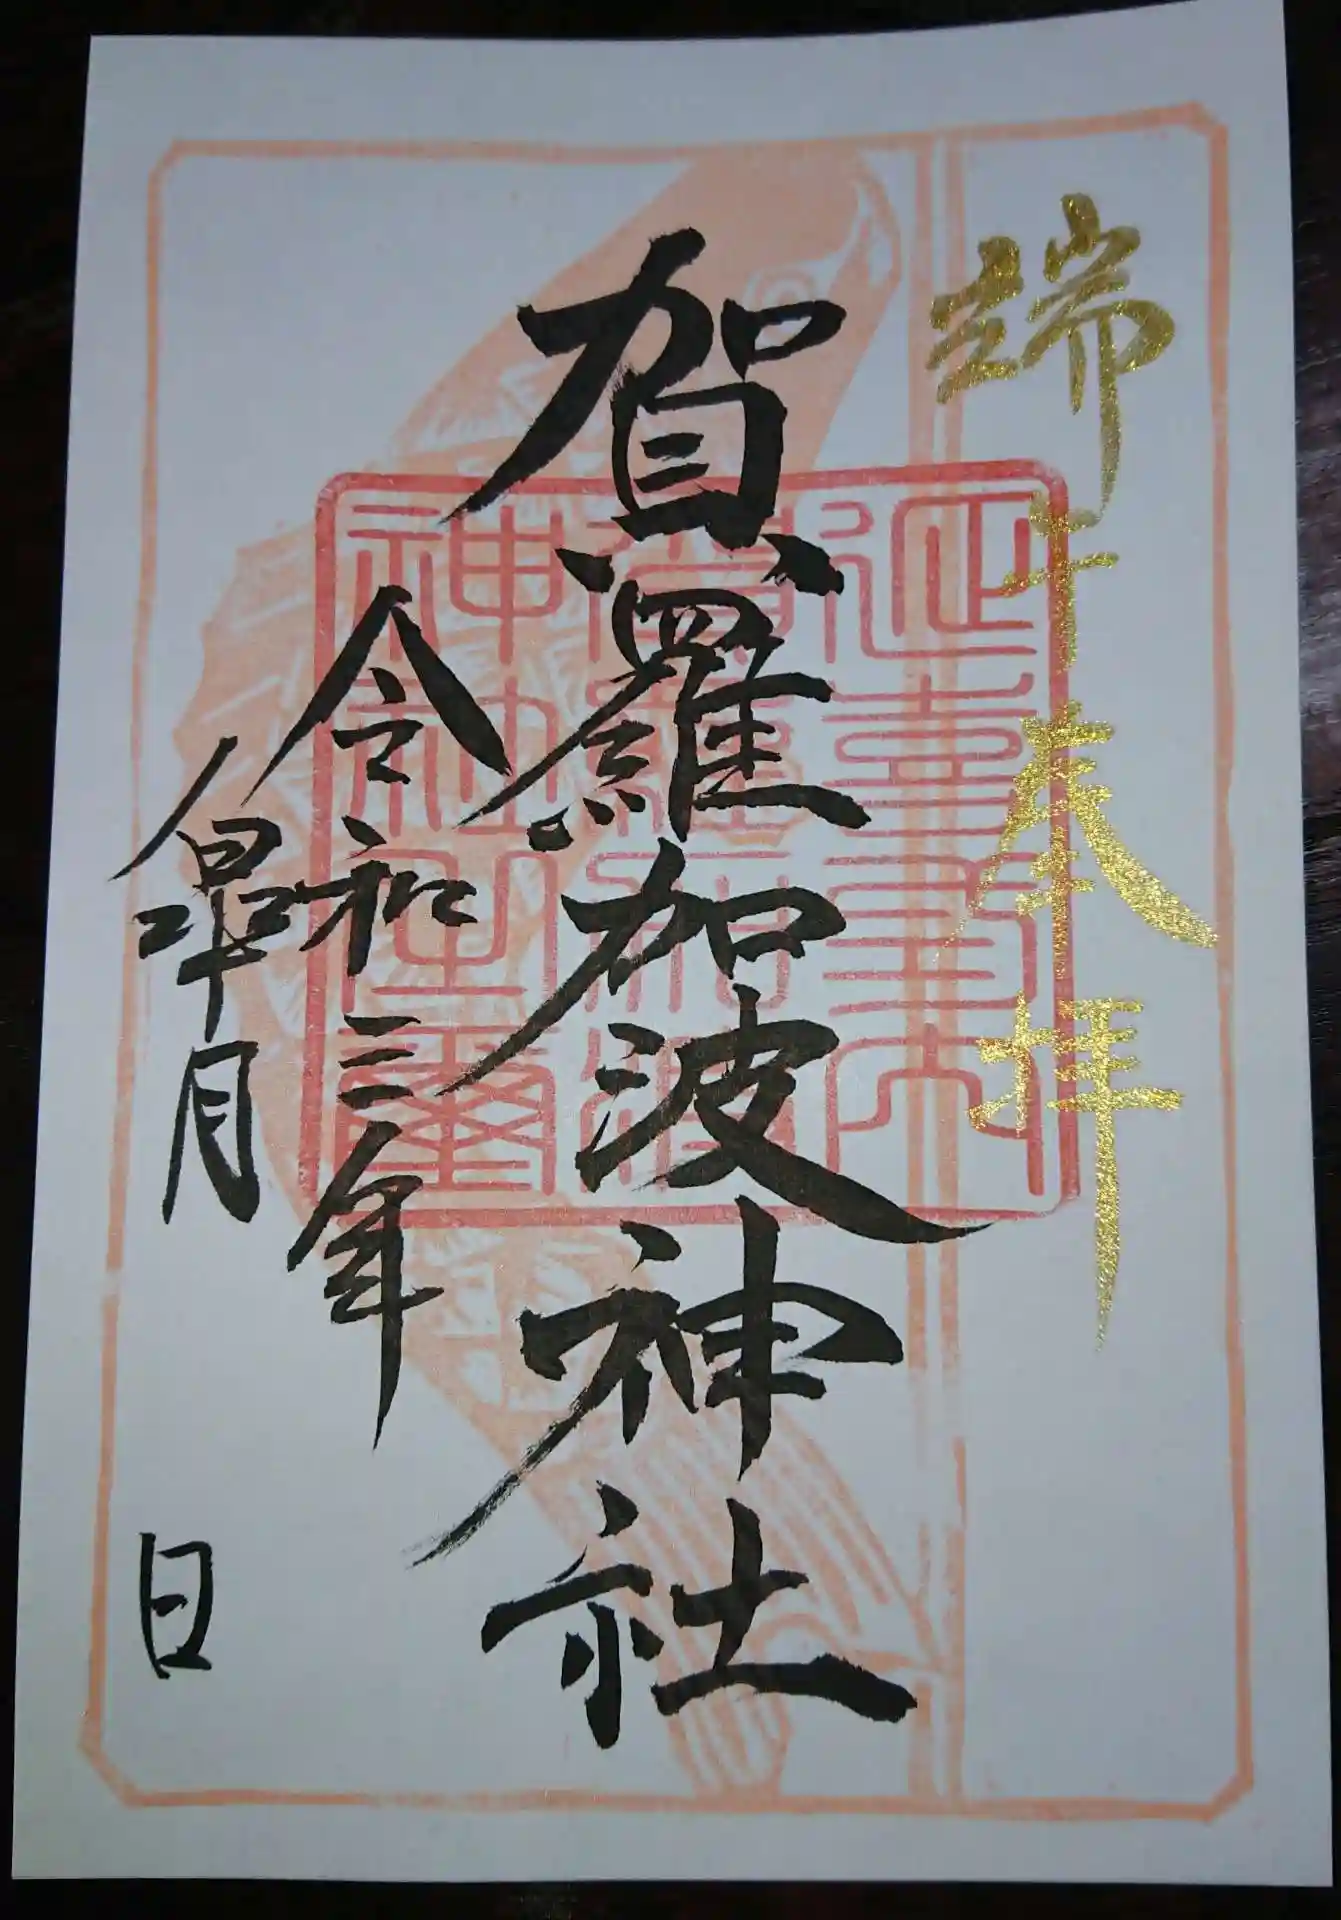 端午 奉拝
賀羅加波神社
令和三年
皐月 日
延喜式内
賀羅加波
神社之璽